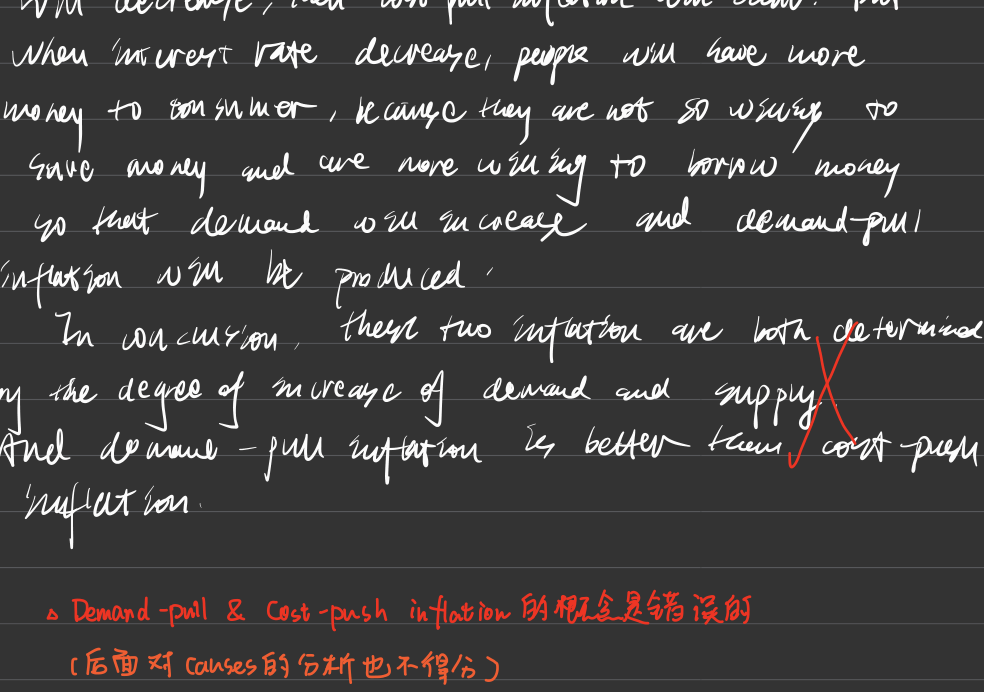 will decrease, then cost pull inflation will occur. But
when interest rate decrease, people will have more
money to consumer, because they are not so willing to
save money and are more willing to borrow money
so that demand will increase and demand-pull
inflation will be produced.
In conclusion, these two inflation are both determined
by the degree of increase of demand and supply.
And demand-pull inflation is better than cost-push
inflation.
Demand-pull & Cost-push inflation的概念是错误的
(后面对causes的分析也不得分)